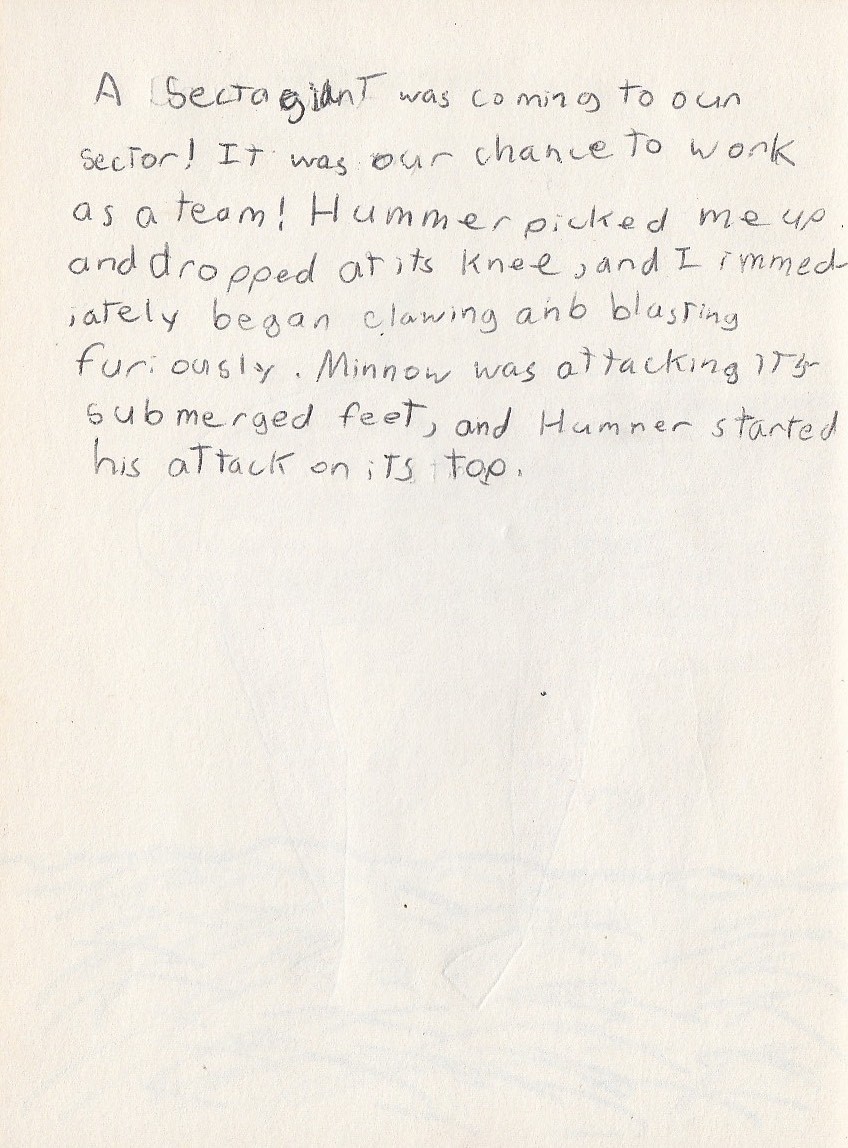 A Sectagiant was coming to our
sector! It was our chance to work
as a team! Hummer picked me up
and dropped at its knee, and I immed-
iately began clawing anb blasting
furiously. Minnow was attacking its
submerged feet, and Hummer started
his attack on its top.